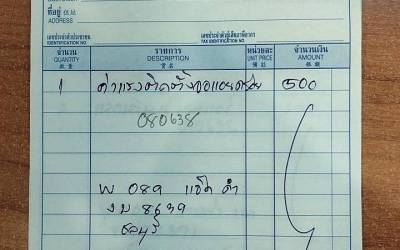 ที่อยู่ 住址
ADDRESS
เลขประจำตัวประชาชน
IDENTIFICATION NO.
เลขประจำตัวผู้เสียภาษีอากร
TAX IDENTIFICATION NO.
จำนวน รายการ หน่วยละ จำนวนเงิน
QUANTITY DESCRIPTION UNIT PRICE AMOUNT
数量 貨名 單價 金額
1 ค่าแรงติดตั้ง 500
080638
089
8639
ชลบุรี